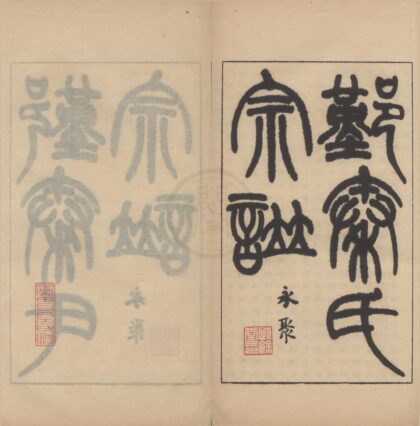 鄞秦氏
宗譜
永聚